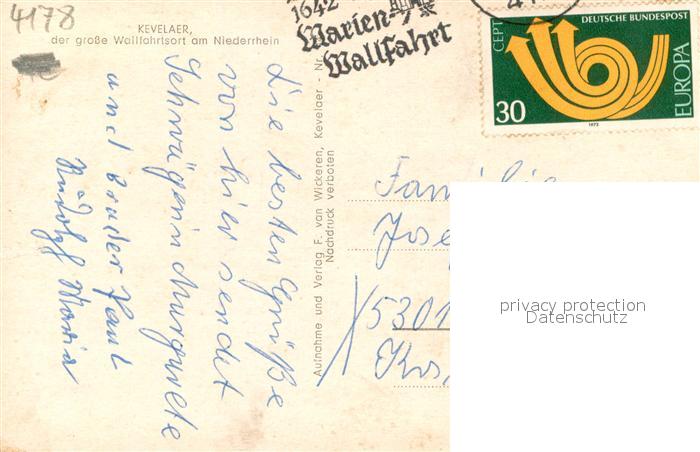 4178
KEVELAER,
der große Wallfahrtsort am Niederrhein
1642
Marien-
Wallfahrt
41
CEPT
DEUTSCHE BUNDESPOST
EUROPA
30
1973
die besten Grüße
von hier sendet
Schwägerin Margarete
und Bruder Paul
Rudolf Maria
Aufnahme und Verlag F. van Wickeren, Kevelaer - Nr.
Nachdruck verboten
Familie
Jose
5301
privacy protection
Datenschutz